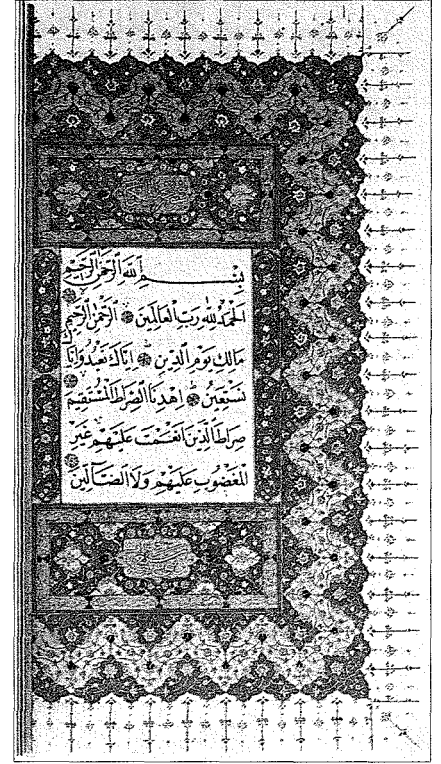 بِسْمِ اللهِ الرَّحْمٰنِ الرَّحِيْمِ
اَلْحَمْدُ لِلّٰهِ رَبِّ الْعَالَمِيْنَ ۞ اَلرَّحْمٰنِ الرَّحِيْمِ ۞
مَالِكِ يَوْمِ الدِّيْنِ ۞ اِيَّاكَ نَعْبُدُ وَاِيَّاكَ
نَسْتَعِيْنُ ۞ اِهْدِنَا الصِّرَاطَ الْمُسْتَقِيْمَ ۞
صِرَاطَ الَّذِيْنَ اَنْعَمْتَ عَلَيْهِمْ غَيْرِ
الْمَغْضُوْبِ عَلَيْهِمْ وَلَا الضَّالِّيْنَ ۞